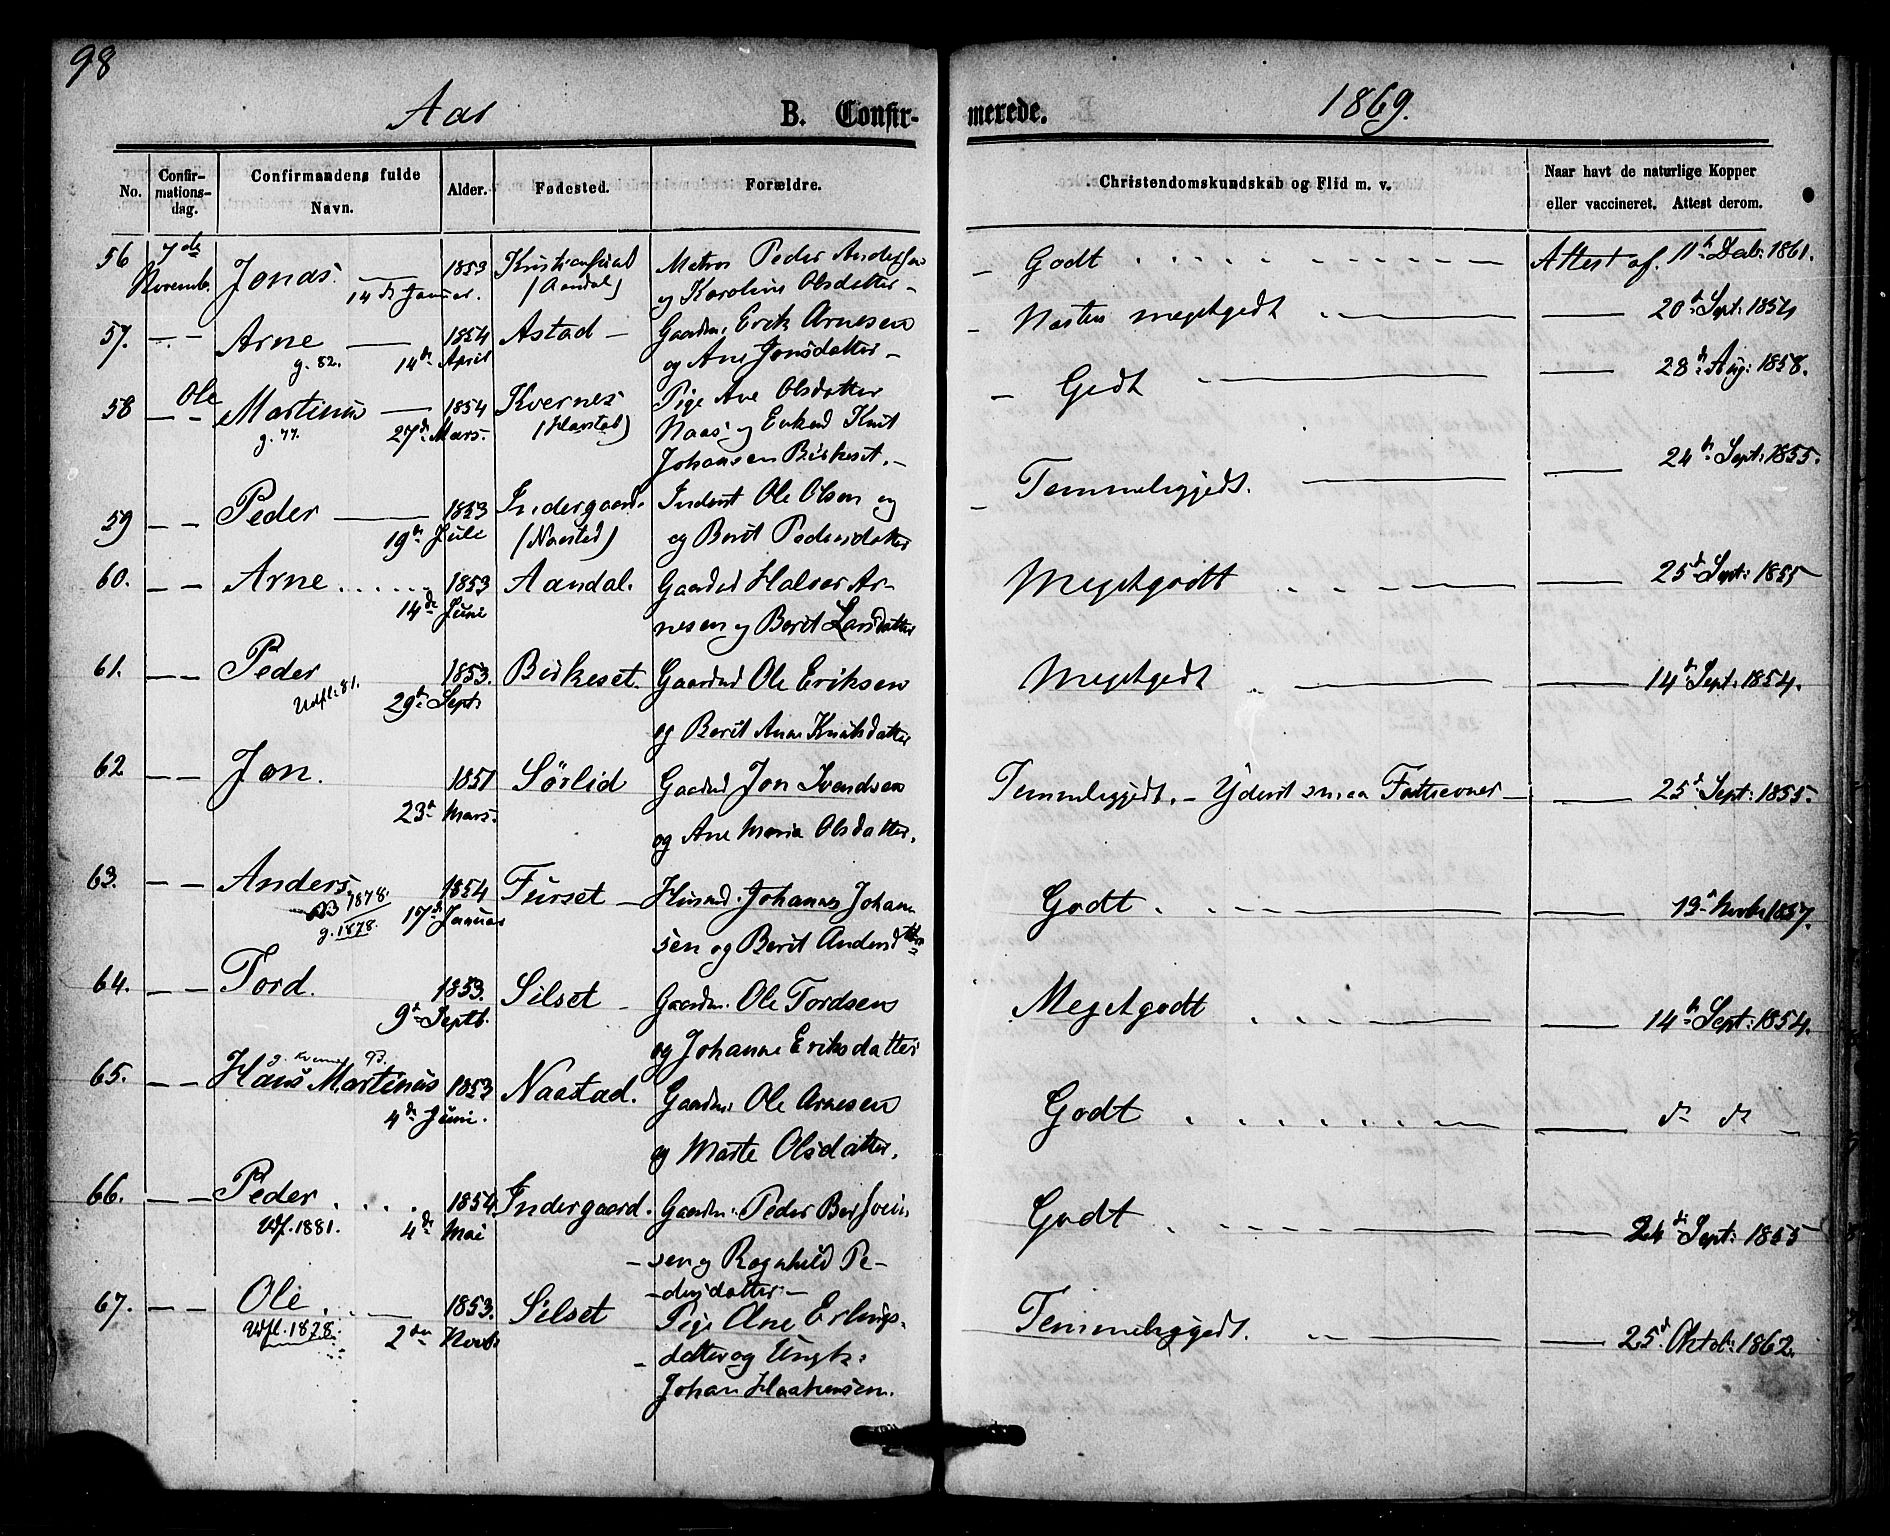 98
Aar B. Confirmerede. 1869.
No. Confirmationsdag. Confirmandens fulde Navn. Alder. Fødested. Forældre. Christendomskundskab og Flid m. v. Naar havt de naturlige Kopper eller vaccineret. Attest derom.
56 7de Novemb. Jonas. — 1853 (Aandal) Peder Andersen — Godt Attest af. 11te Deb: 1861.
14de Januar. og Karoline Olsdatter —
57. — — Arne — 1854 Astad — Gaardm: Erik Arnesen — Næsten megetgodt — 20de Sept: 1854
g. 82. 14de April og Ane Jonsdatter —
58 — — Ole Martinus — 1854 Kvernes Pige Ane Olsdatter — Godt — 28de Aug: 1858.
g. 77. 27de Mars. Naas og Knut
Johansen Birkeset. —
59 — — Peder — 1853 Indergaard. Inderst Ole Olsen og — Temmeliggodt. — 24de Sept: 1855.
19de Juli (Naastad) og Berit Pedersdatter
60. — — Arne 1853 Aandal. Halvor Ar- Megetgodt — 25de Sept: 1855
14de Juni nesen og Berit Larsdatter
61. — — Peder 1853. Birkeset. Ole Eriksen Megetgodt — 14de Sept: 1854.
Udfl. 81. 29de Sept: og Berit Ane Knutsdatter
62 — — Jon. 1851 Sørlid Jon Ivendsen Temmeliggodt. — Yderst smaa Fatteevner — 25de Sept: 1855.
23de Mars. og Ane Maria Olsdatter.
63. — — Anders. 1854 Furset — Johannes Johan- Godt — 13de Novbr 1857.
1878. 17de Januar sen og Berit
g. 1878.
64. — — Tord. 1853. Silset — Gaardm. Ole Tordsen Megetgodt — 14de Sept: 1854.
9de Septb. og Johanne Eriksdatter
g. 93.
65. — — Hans Martinus 1853 Naastad. Gaardm: Ole Arnesen Godt — do do —
4de Juni. og Marte Olsdatter.
66. — — Peder 1854. Indergaard. Gaardm: Peder Godt — 24de Sept: 1855
Udf. 1881. 4de Mai — sen og Ragnhild Pe-
— dersdatter. —
67. — — Ole — 1853. Silset Pige Ane Erlings- Temmeliggodt. — 25de Oktob: 1862.
Udfl. 1878. 2den Novb: — datter og Ungk:
Johan Haakensen.